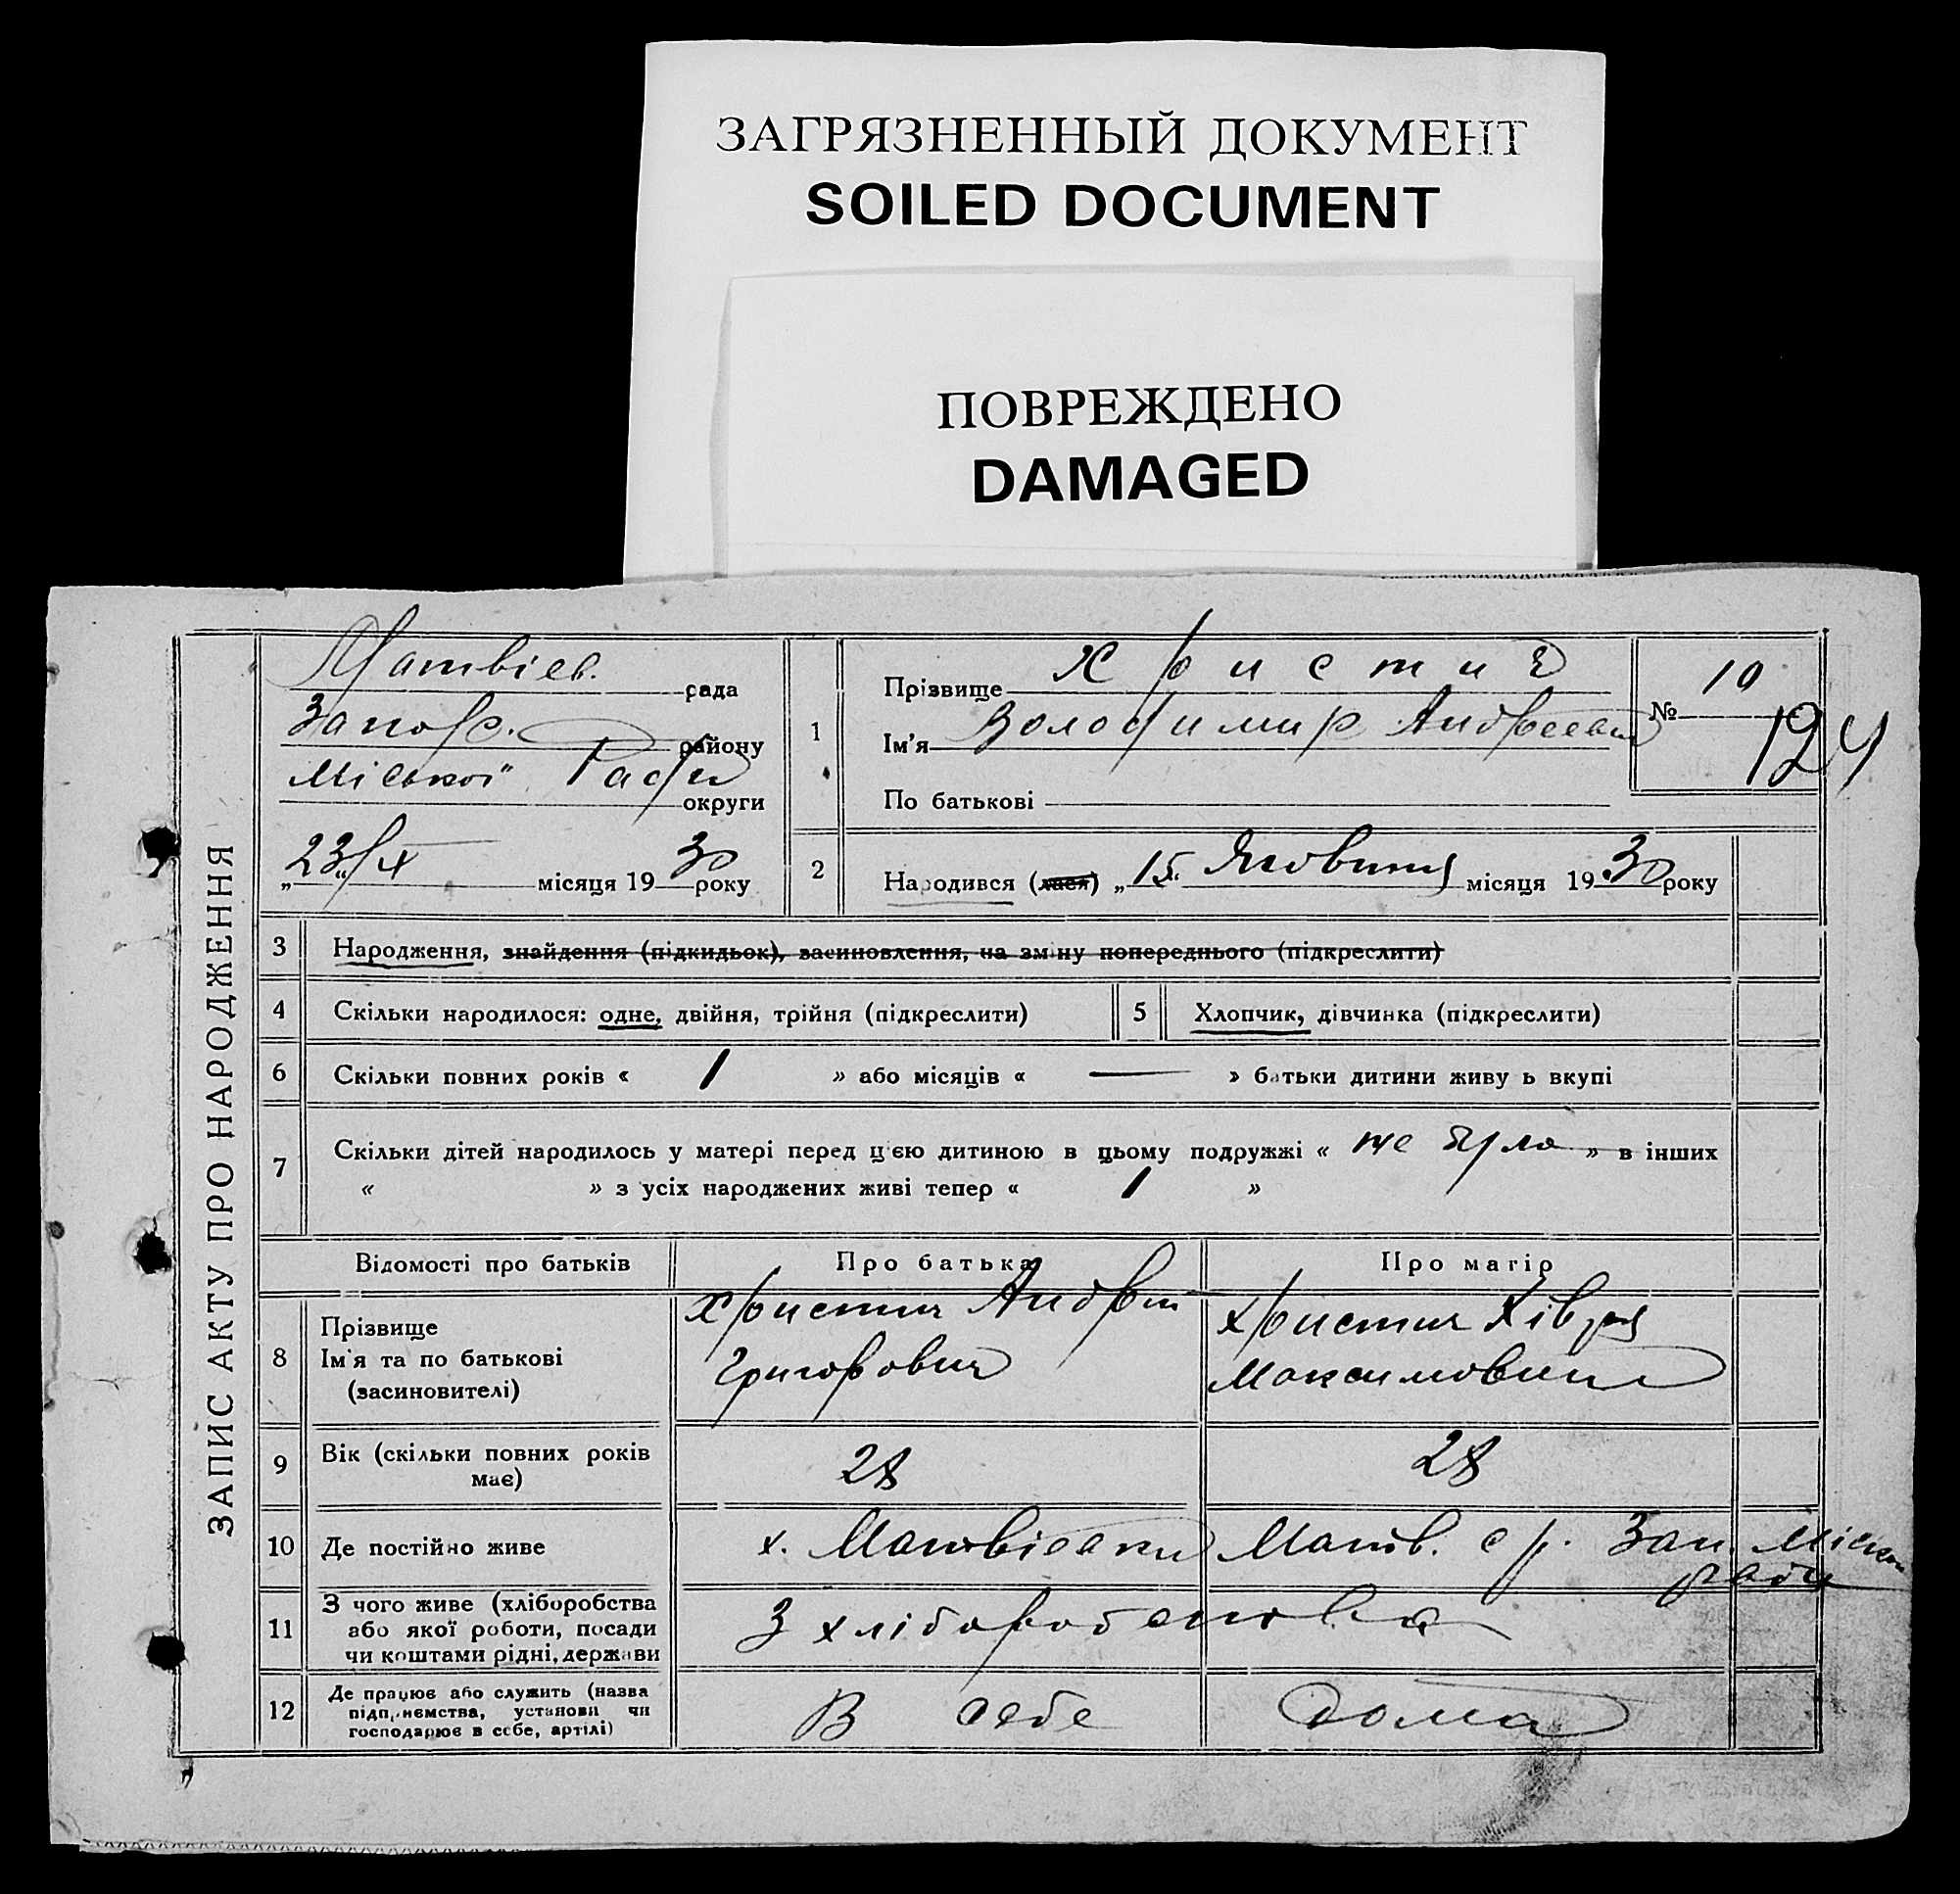 ЗАГРЯЗНЕННЫЙ ДОКУМЕНТ
SOILED DOCUMENT
ПОВРЕЖДЕНО
DAMAGED
ЗАПИС АКТУ ПРО НАРОДЖЕННЯ
Матвіев. рада
Запор. району
Міської Ради округи
„23/IX місяця 1930 року
1
Прізвище Христич
Ім'я Володимир Андреевич
По батькові
№ 10
124
2
Народився (лася) „15 Жовтня місяця 1930 року
3 Народження, знайдення (підкидьок), засиновлення, на зміну попереднього (підкреслити)
4 Скільки народилося: одне, двійня, трійня (підкреслити)
5 Хлопчик, дівчинка (підкреслити)
6 Скільки повних років « 1 » або місяців « — » батьки дитини живуть вкупі
7 Скільки дітей народилось у матері перед цією дитиною в цьому подружжі « не було » в інших
« » з усіх народжених живі тепер « 1 »
Відомості про батьків Про батька Про матір
8 Прізвище
Ім'я та по батькові
(засиновителі)
Христич Андрій
Григорович
Христич Хівря
Максимовна
9 Вік (скільки повних років
має)
28
28
10 Де постійно живе х. Матвіевки Матв. с/р. Зап. Міськ
ради
11 З чого живе (хліборобства
або якої роботи, посади
чи коштами рідні, держави
З хліборобства
12 Де працює або служить (назва
підприємства, установи чи
господарює в себе, артілі)
В себе
Дома